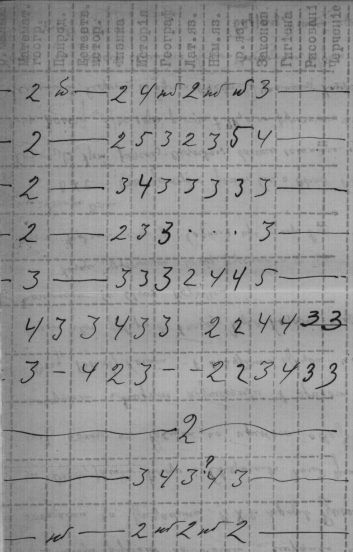 Математ. геогр. Природ. Естеств. истор. Физика Исторія Географ. Лат.яз. Нѣм.яз. Фр.яз. Законов. Гигіена Рисованіе Черченіе
— 2 нб — 2 4 нб 2 нб нб 3 —
— 2 — 2 5 3 2 3 5 4 —
— 2 — 3 4 3 3 3 3 3 —
— 2 — 2 3 3 · · · 3 —
— 3 — 3 3 3 2 4 4 5 —
4 3 3 4 3 3 2 2 4 4 3 3
3 – 4 2 3 – – 2 2 3 4 3 3
— 2 —
— 3 4 3 ? 4 3 —
— нб — 2 нб 2 нб 2 —